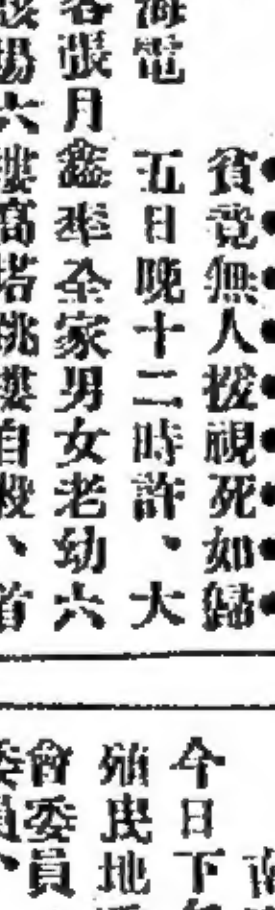 貧竟無人援視死如歸
海電　五日晚十二時許、大
客張月鑫率全家男女老幼六
場六樓高塔跳樓自殺、首
今日下
殖民地
會委員
委員、